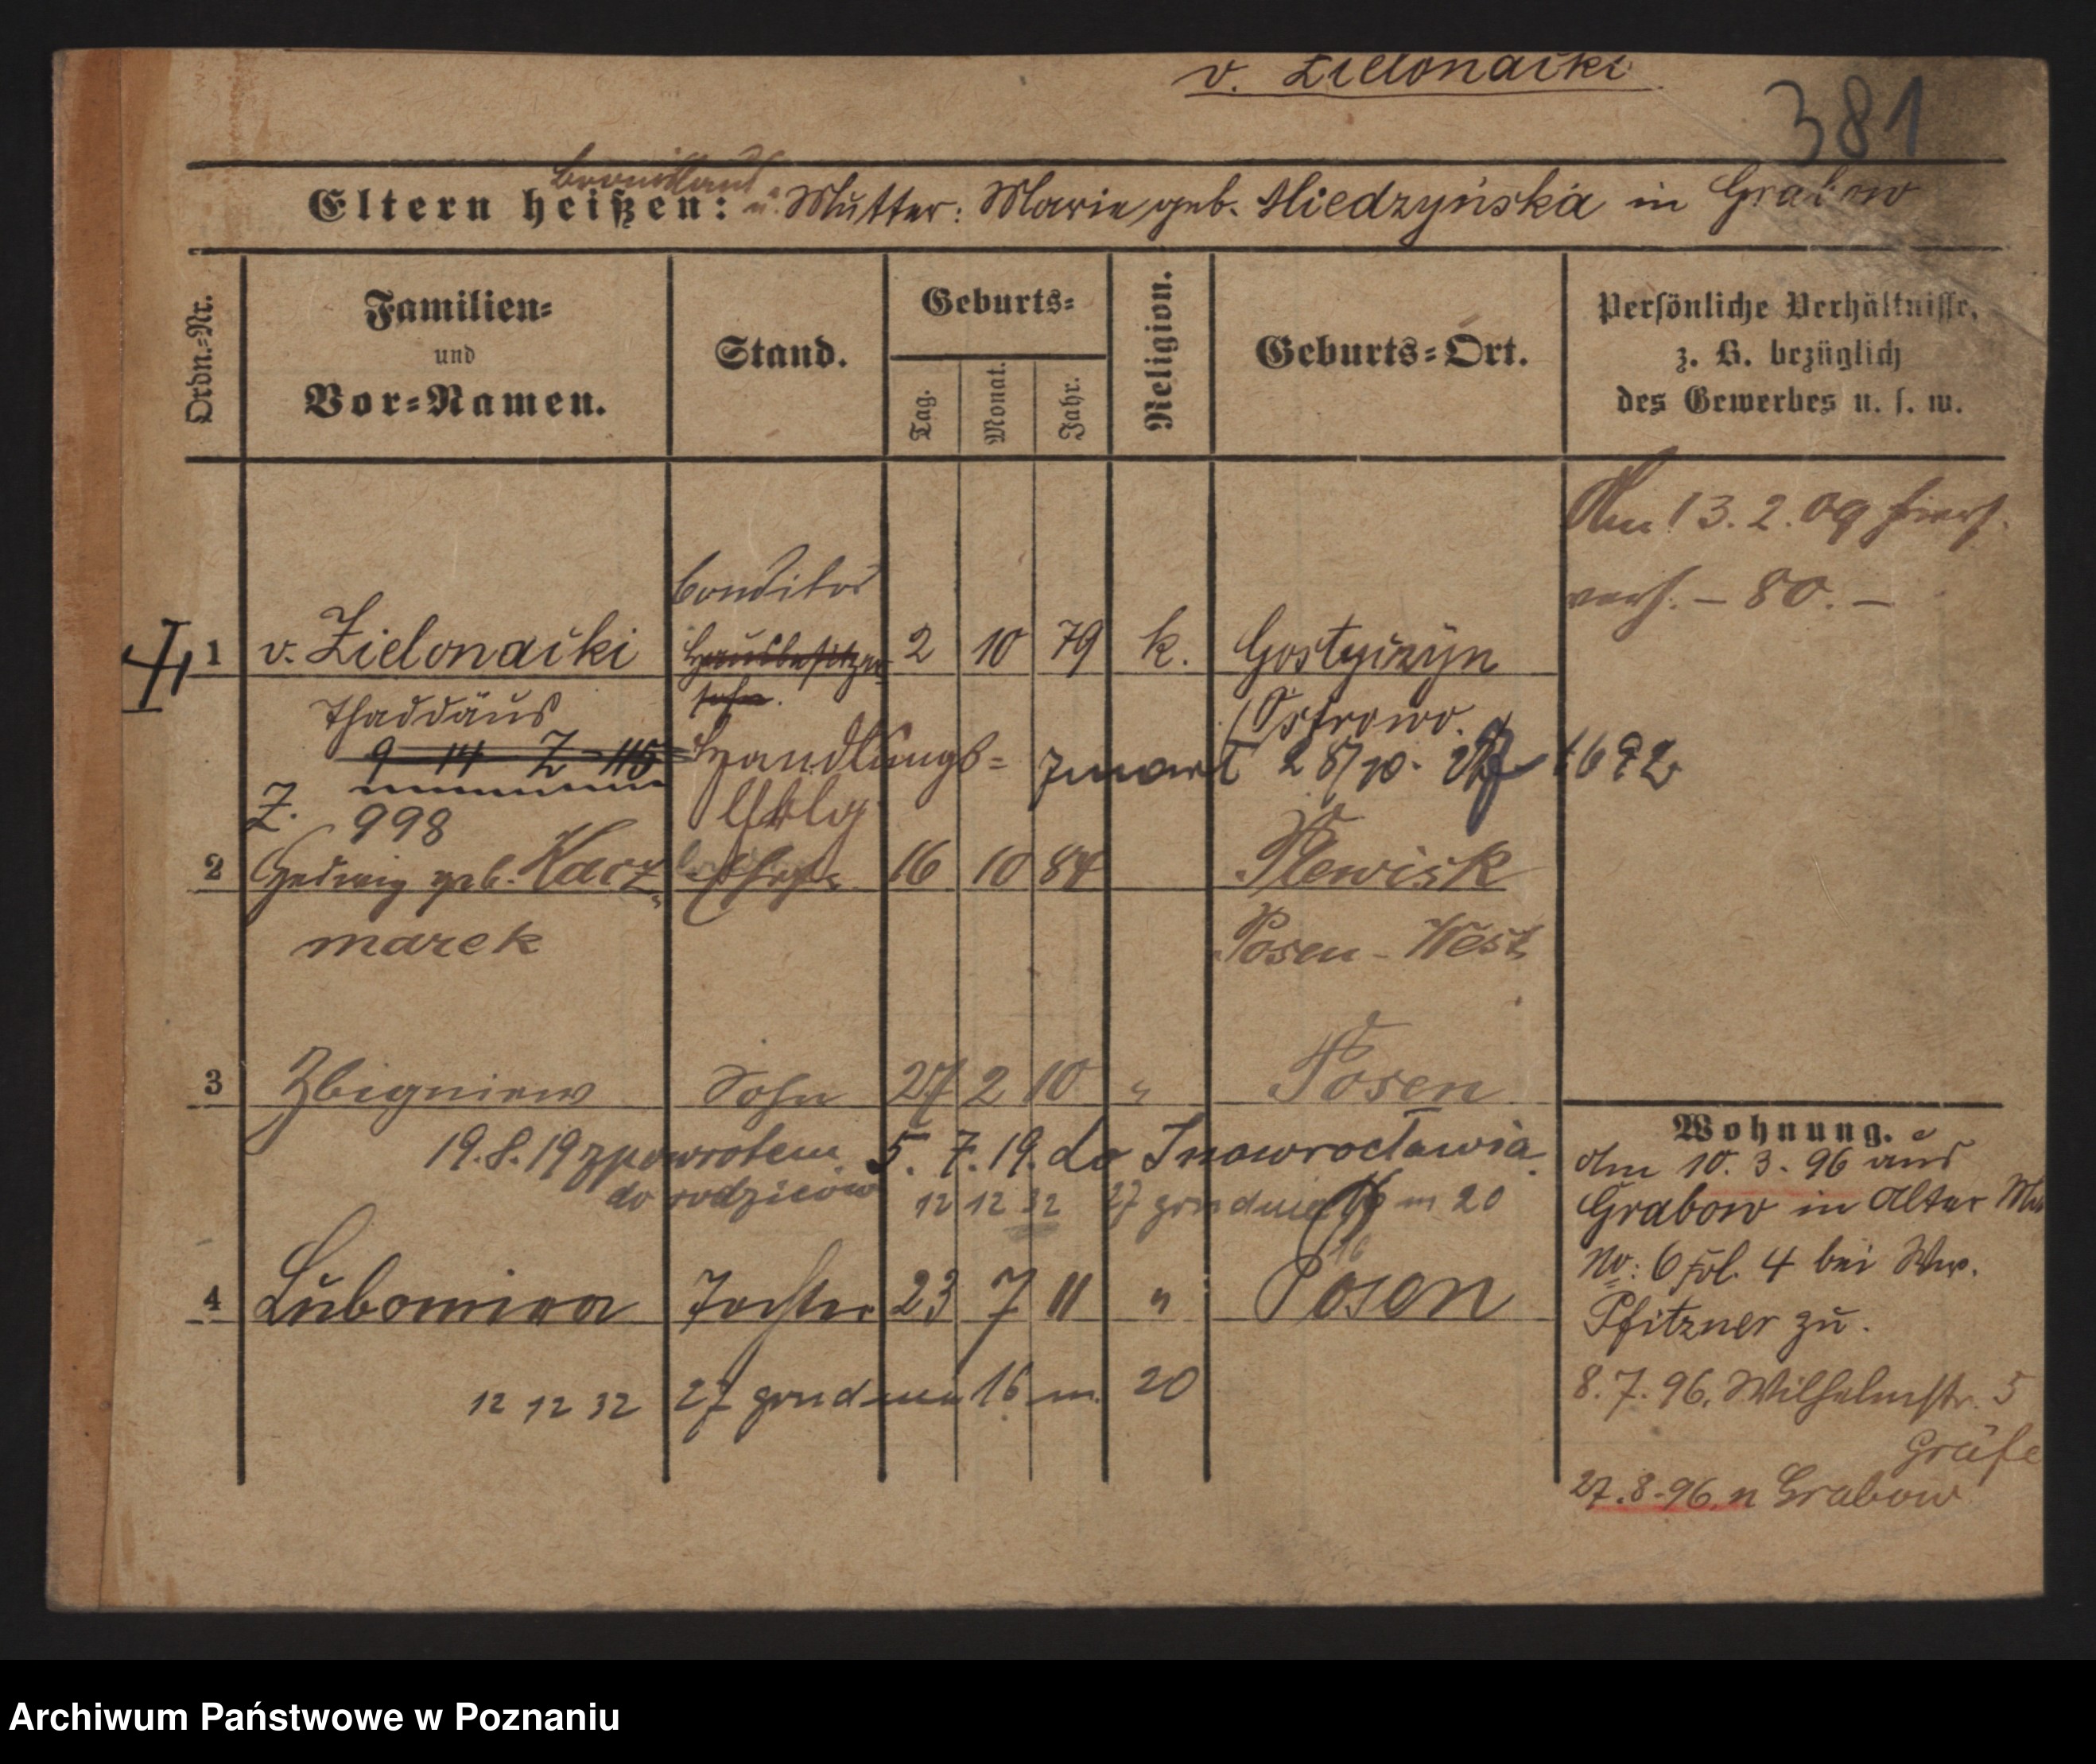 v. Zielonacki
381
Bronislaus
Eltern heißen: u. Mutter: Marie geb. Miedzyńska in Grabow
Ordn.-Nr.
Familien- und Vor-Namen.
Stand.
Geburts-
Tag.
Monat.
Jahr.
Religion.
Geburts-Ort.
Persönliche Verhältnisse, z. B. bezüglich des Gewerbes u. s. w.
Am 13.2.09
– 80. –
Conditor
1 v. Zielonacki Hausbesitzer 2 10 79 k. Gostyczyn
sohn.
Thaddäus
Ostrowo.
9 14 Z 115
Handlungs=
zmarł 28/10. 1692
Z. 998
2 Hedwig geb. Karz- Ehefr. 16 10 84 Plewisk
marek
Posen-West
3 Zbigniew Sohn 27 2 10 " Posen
19.8.19 z powrotem 5. 7. 19. do Inowrocławia
do rodziców 12 12 32 27 grudnia 16 m 20
16
4 Lubomira Tochter 23 7 11 " Posen
12 12 32 27 grudnia 16 m. 20
Wohnung.
Am 10. 3. 96 aus
Grabow in Alter
No: 6 fol. 4 bei Ww.
Pfitzner zu.
8. 7. 96. Wilhelmstr. 5
Gräfe
27.8.96. n Grabow
Archiwum Państwowe w Poznaniu